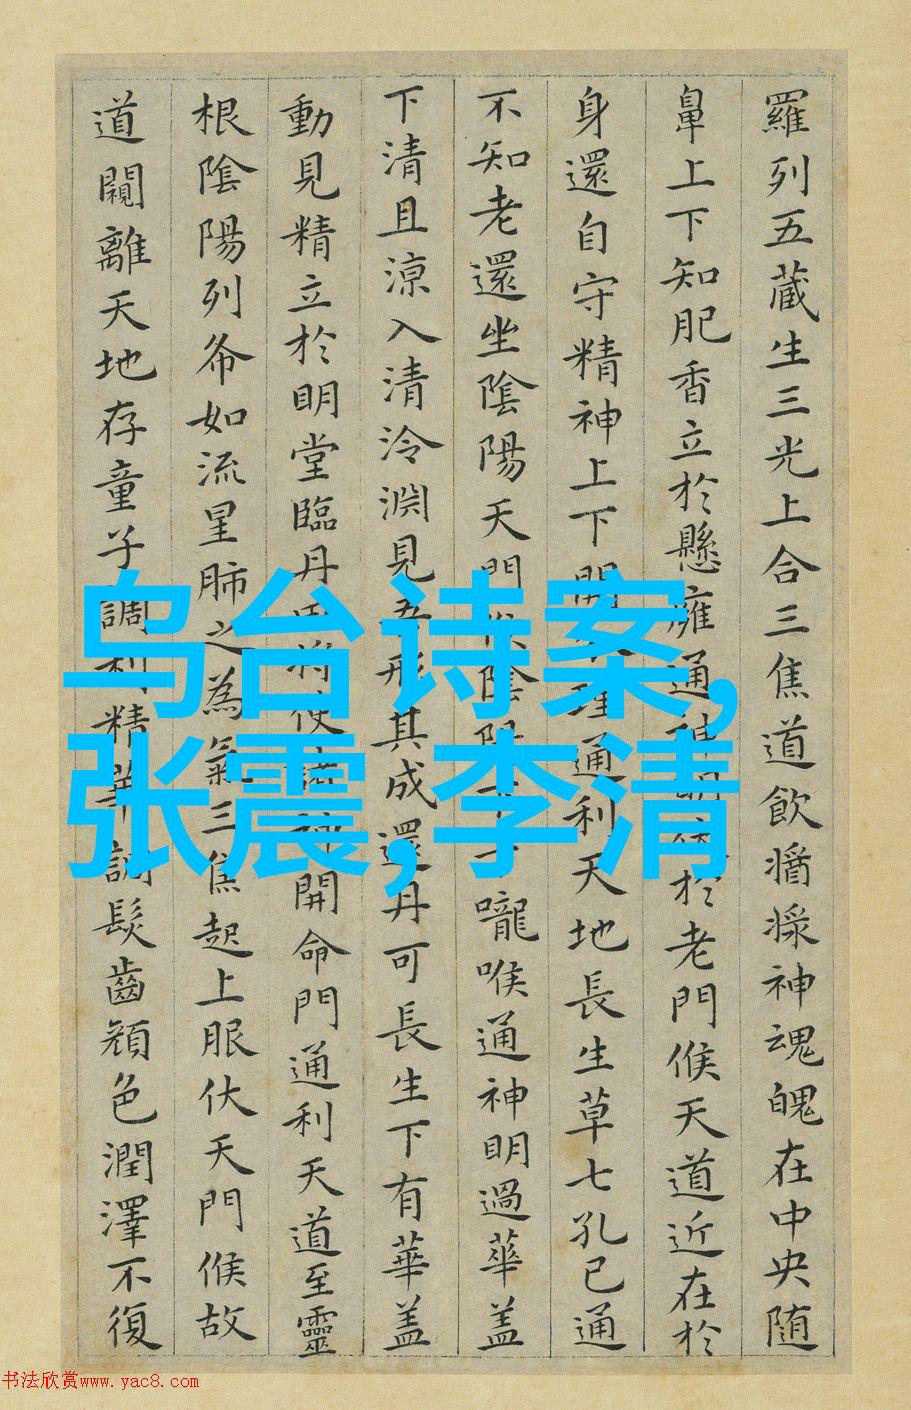 羅列五藏生三光上合三焦道飲醬漿神魂魄在中央随
鼻上下知肥香立於懸雍通神明於老門候天道近在於
身還自守精神上下開理通利天地長生草七孔已通
不知老還坐陰陽天門候陰陽下嚨喉通神明過華盖
下清且涼入清泠淵見吾形其成還丹可長生下有華盖
動見精立於明堂臨丹使開命門通利天道至靈
根陰陽列布如流星肺之為氣三焦起上服伏天門候故
道闚離天地存童子調利精華調髮齒顏色潤澤不復
乌台诗案,
张震,李清
书法欣赏www.yac8.com